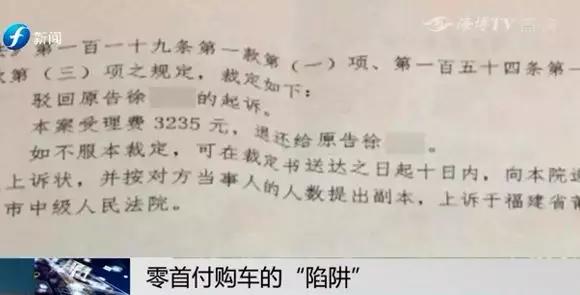 新闻 海博TV
法》第一百一十九条第一款第（一）项、第一百五十四条第一
款第（三）项之规定，裁定如下：
驳回原告徐 的起诉。
本案受理费3235元，退还给原告徐 。
如不服本裁定，可在裁定书送达之日起十日内，向本院递
上诉状，并按对方当事人的人数提出副本，上诉于福建省莆
市中级人民法院。
零首付购车的“陷阱”